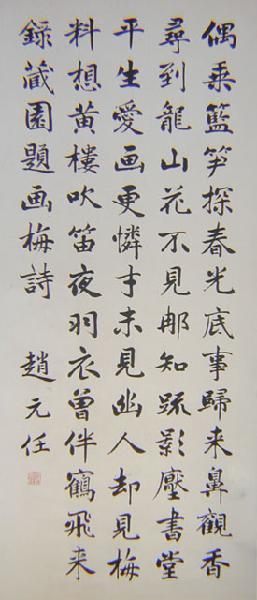 偶乘籃笋探春光底事歸来鼻觀香
尋到龍山花不見那知疏影壓書堂
平生愛画更憐才未見幽人却見梅
料想黄樓吹笛夜羽衣曾伴鶴飛来
錄藏園題画梅詩　趙元任